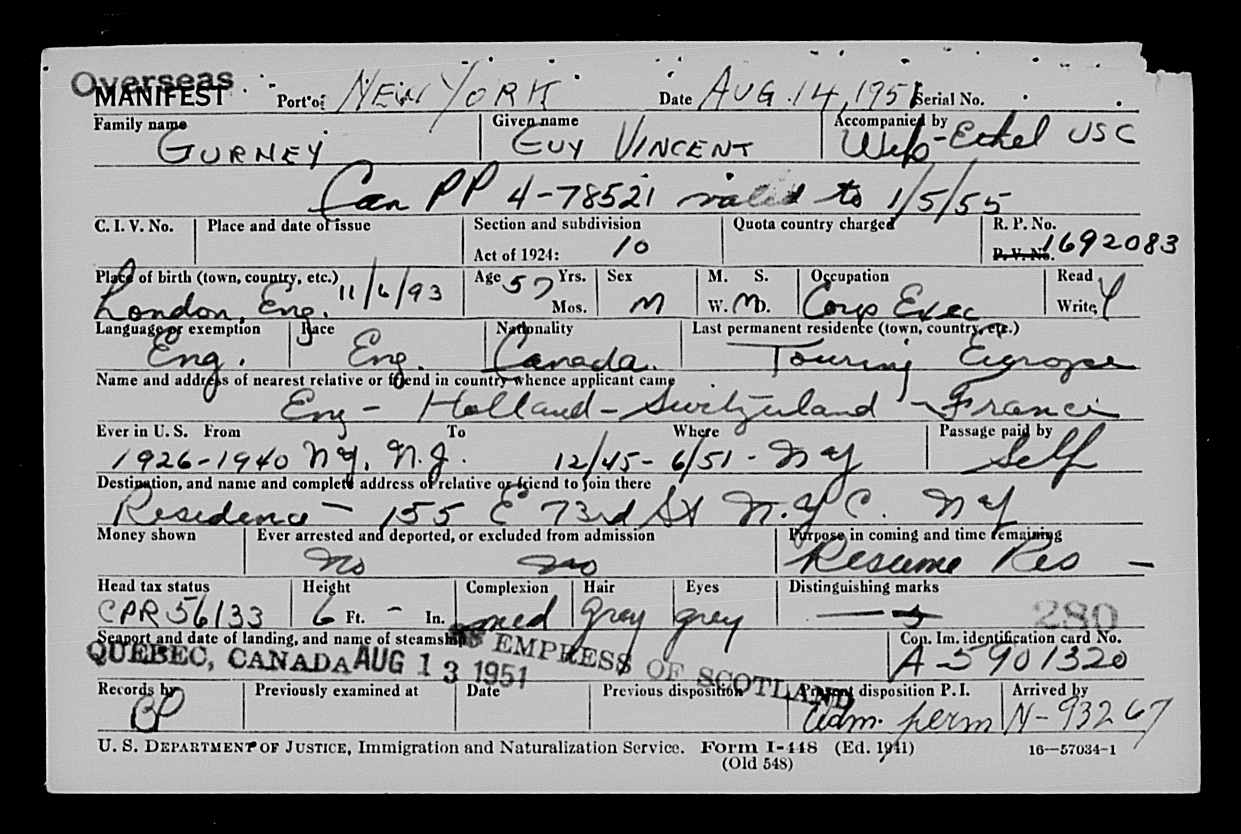 Overseas
MANIFEST Port of NEW YORK Date AUG. 14, 1951 Serial No.
Family name Given name Accompanied by
GURNEY GUY VINCENT Wife-Ethel USC
Can PP 4-78521 valid to 1/5/55
C. I. V. No. Place and date of issue Section and subdivision Quota country charged R. P. No.
Act of 1924: 10 P. V. No. 1692083
Place of birth (town, country, etc.) 11/6/93 Age 57 Yrs. Sex M. S. Occupation Read Y
London, Eng. Mos. M W. D. Corp Exec Write
Language or exemption Race Nationality Last permanent residence (town, country, etc.)
Eng. Eng. Canada. Touring Europe
Name and address of nearest relative or friend in country whence applicant came
Eng - Holland - Switzerland - France
Ever in U. S. From To Where Passage paid by
1926-1940 NY, N.J. 12/45- 6/51 - NY Self
Destination, and name and complete address of relative or friend to join there
Residence - 155 E 73rd St N.Y.C. NY
Money shown Ever arrested and deported, or excluded from admission Purpose in coming and time remaining
No No Resume Res -
Head tax status Height Complexion Hair Eyes Distinguishing marks
CPR 56133 6 Ft. - In. med gray grey 280
Seaport and date of landing, and name of steamship Con. Im. identification card No.
QUEBEC, CANADA AUG 13 1951 SS EMPRESS OF SCOTLAND A-5901320
Records by Previously examined at Date Previous disposition Present disposition P. I. Arrived by
BP Adm. perm N-93267
U. S. DEPARTMENT OF JUSTICE, Immigration and Naturalization Service. Form I-448 (Ed. 1941) 16—57034-1
(Old 548)